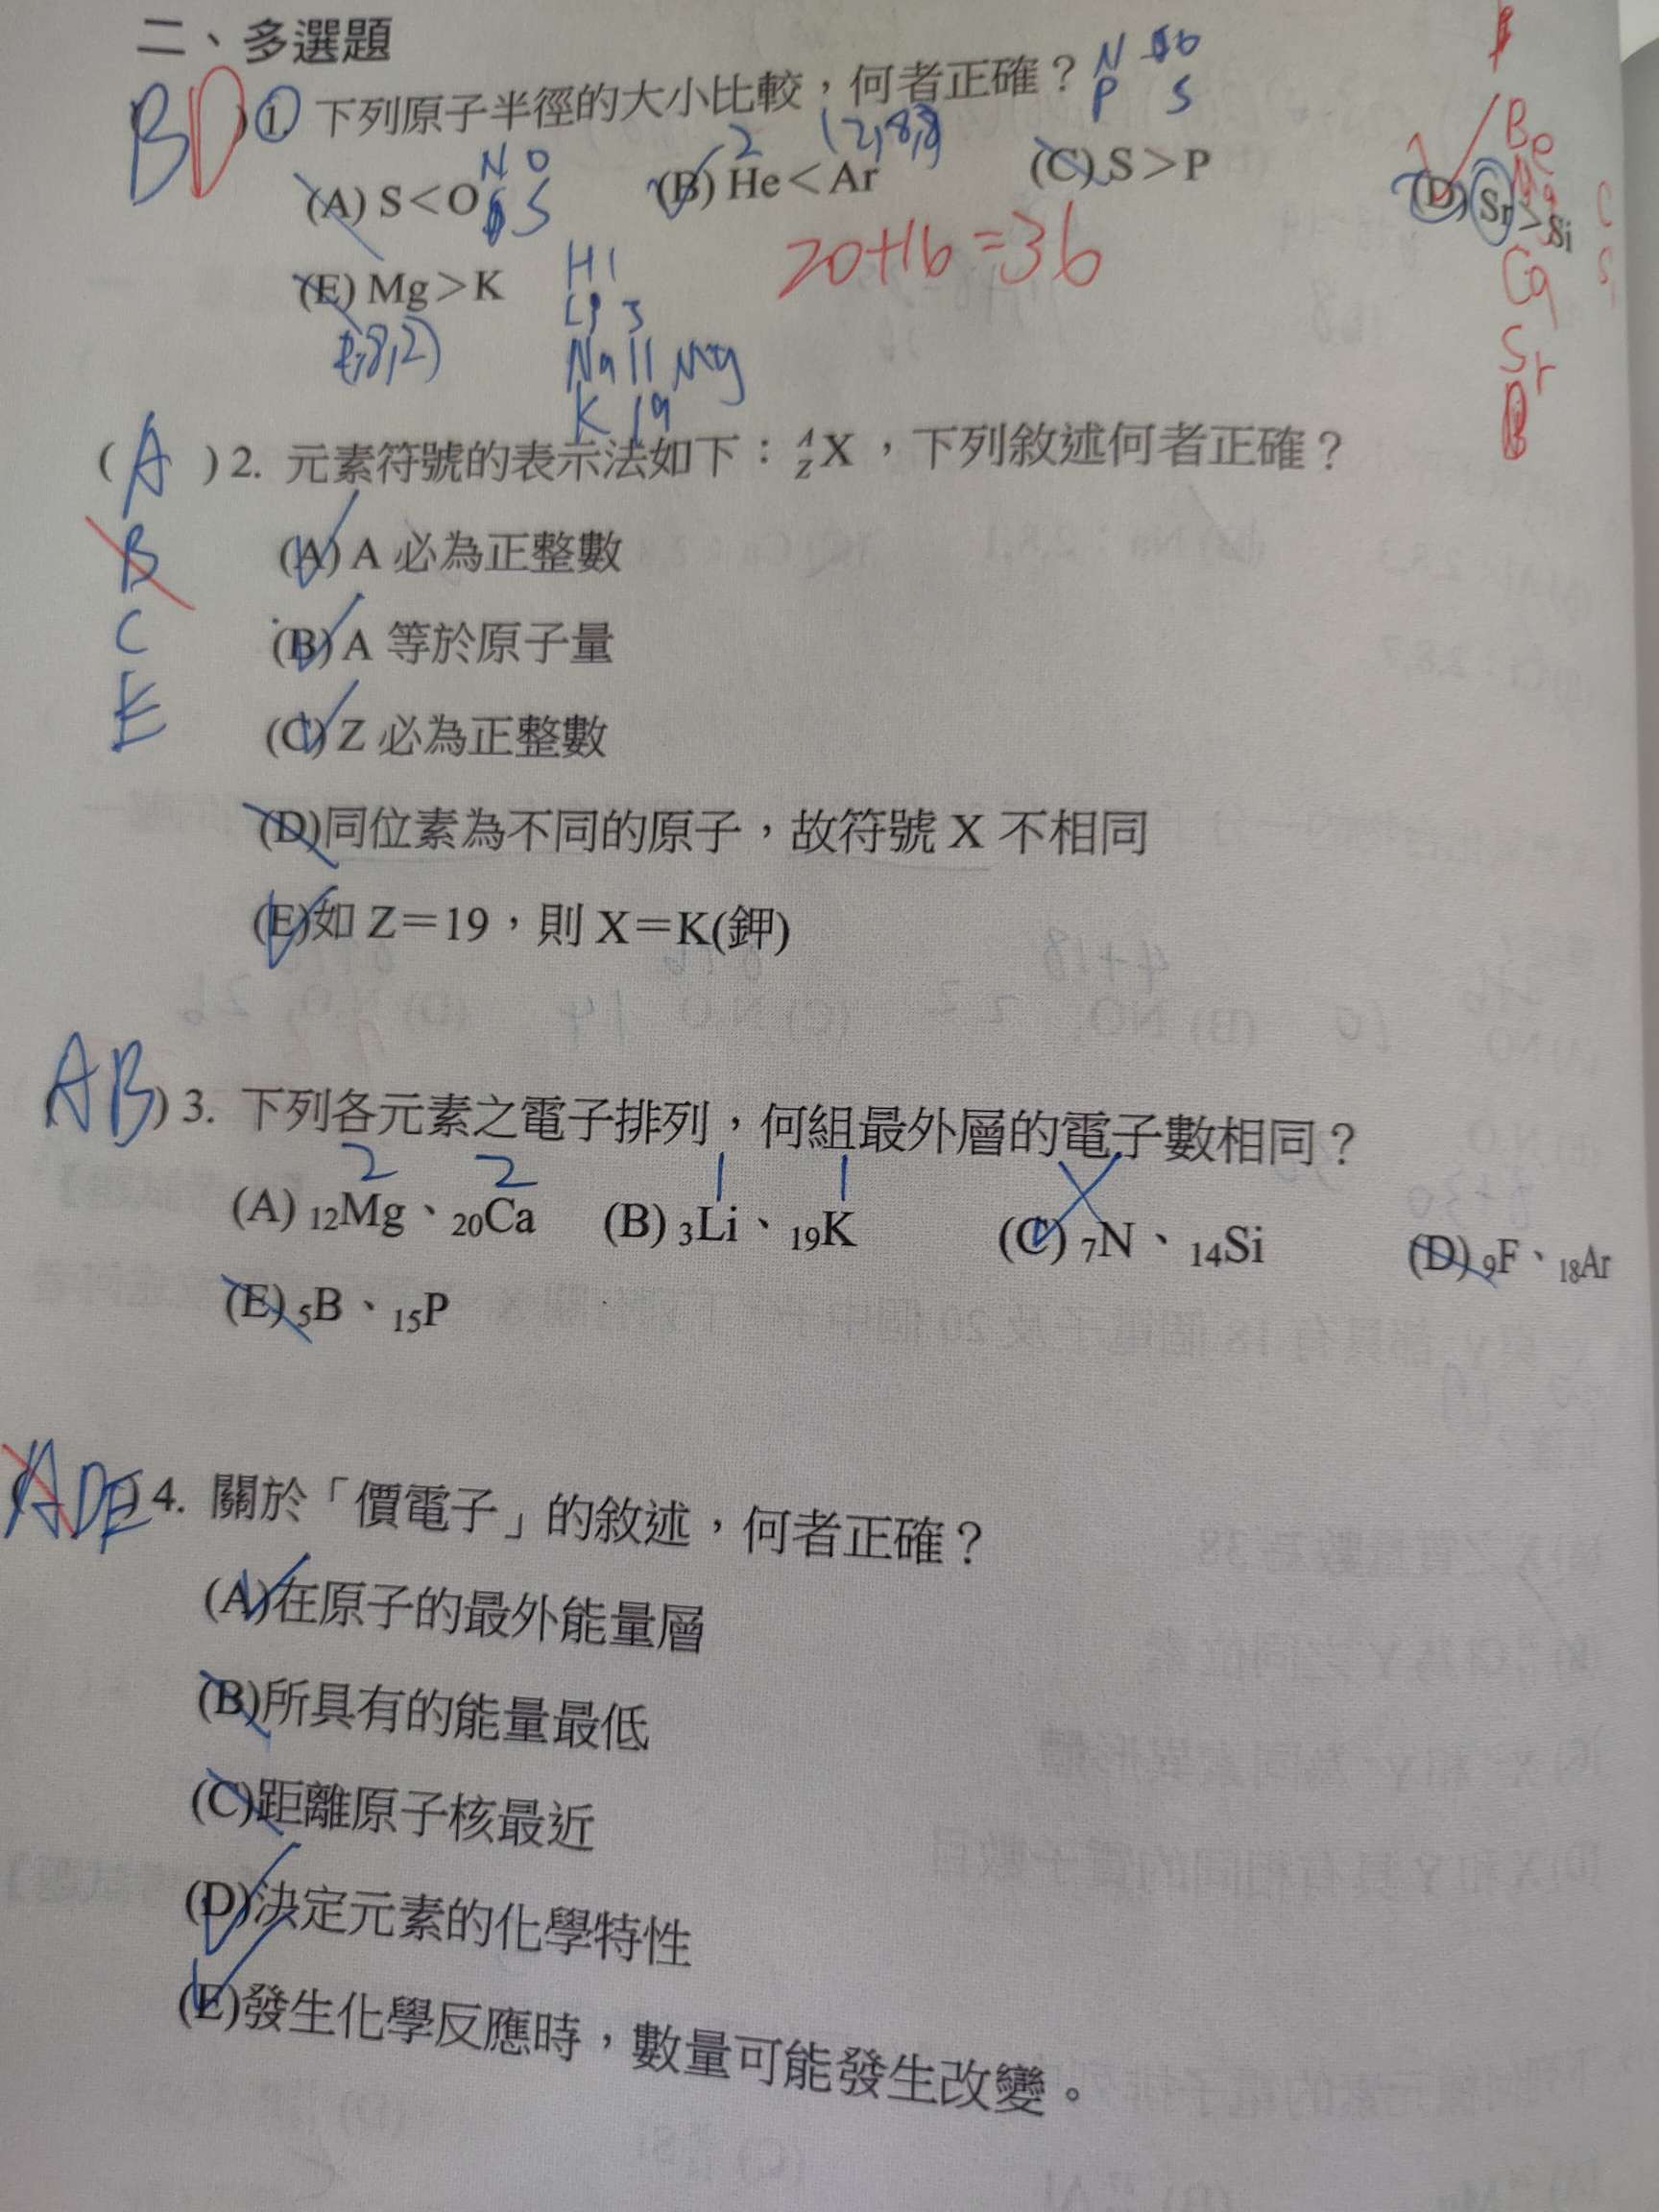 二、多選題
N S6
P S
BD ) 1. 下列原子半徑的大小比較，何者正確？
N O
S
2 (2,8,8)
(A) S＜O (B) He＜Ar (C) S＞P (D) Sr＞Si
Be
Mg
Ca
Sr
C
Si
20+16=36
(E) Mg＞K
(2,8,2)
H 1
Li 3
Na 11 Mg
K 19
( A ) 2. 元素符號的表示法如下：ᴬzX，下列敘述何者正確？
B
C
E
(A) A 必為正整數
(B) A 等於原子量
(C) Z 必為正整數
(D)同位素為不同的原子，故符號 X 不相同
(E)如 Z＝19，則 X＝K(鉀)
AB ) 3. 下列各元素之電子排列，何組最外層的電子數相同？
2 2 1 1
(A) ₁₂Mg、₂₀Ca (B) ₃Li、₁₉K (C) ₇N、₁₄Si (D) ₉F、₁₈Ar
(E) ₅B、₁₅P
ADE ) 4. 關於「價電子」的敘述，何者正確？
(A)在原子的最外能量層
(B)所具有的能量最低
(C)距離原子核最近
(D)決定元素的化學特性
(E)發生化學反應時，數量可能發生改變。